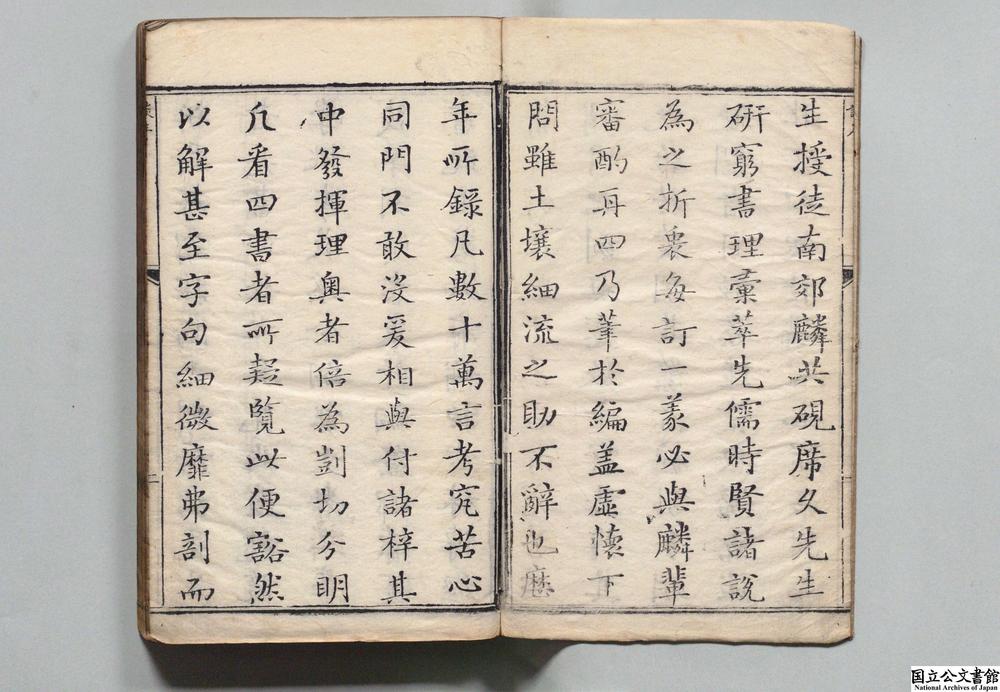 生授徒南郊麟共硯席久先生
研窮書理彙萃先儒時賢諸說
為之折衷每訂一義必與麟輩
審酌再四乃葦於編盖虛懷下
問雖土壤細流之助不辭也歴
年所錄凡數十萬言考究苦心
同門不敢沒爰相與付諸梓其
中發揮理奧者倍為剴切分明
凡看四書者所疑覽此便豁然
以解甚至字句細微靡弗剖而
国立公文書館
National Archives of Japan